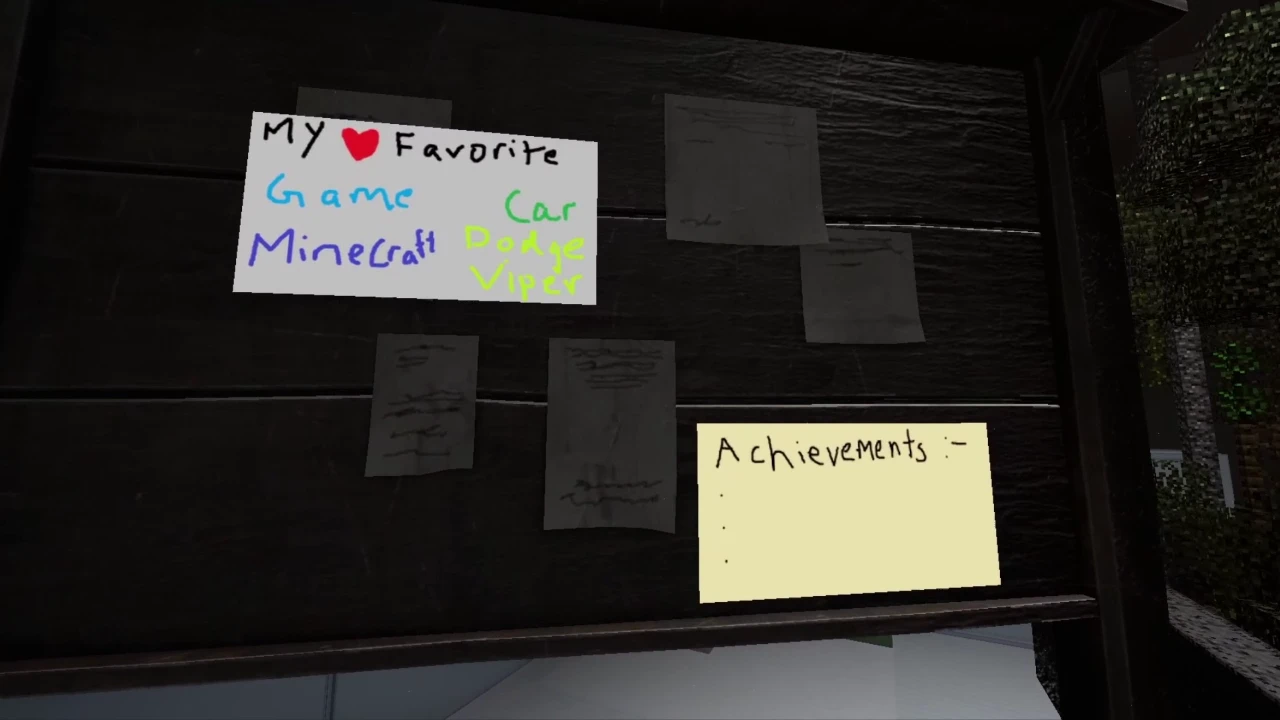 My Favorite
Game
Car
Minecraft
Dodge
Viper
Achievements :-
.
.
.